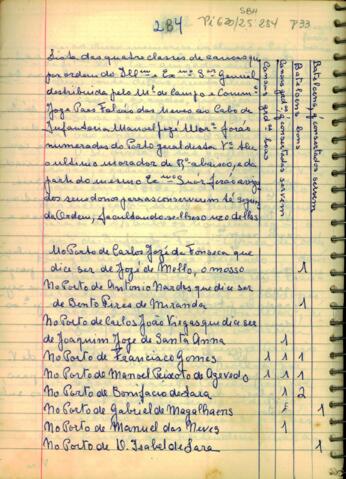 284
SBH
Pi 620/25.284
P33
Lista das quatro classes de canoas q
por ordem do Illmo e Exmo Snr General
distribuida pelo Me de Campo e Comm
Joze Paes Falcão das Neves ao Cabo de
Infantaria Manoel Jozé Mora forão
numeradas do Porto geral desta Va the
o ultimo morador de Ro abaixo, e da
parte do mesmo Exmo Snor
da Ordem, facultando-se lhes o uzo dellas
Canoas q
bôas
Canoas q
consertadas servem
Bateloens bons
Bateloens q consertados servem
No Porto de Carlos Jozé da Fonseca que
dice ser de Jozé de Mello, o mosso 1
No Porto de Antonio Nardes que dice ser
de Bento Pires de Miranda 1
No Porto de Carlos João Viegas que dice ser
de Joaquim Joze de Santa Anna 1
No Porto de Francisco Gomes 1 1 1
No Porto de Manoel Peixoto de Azevedo 1 1 1
No Porto de Bonifacio de Lara 1 2
No Porto de Gabriel de Magalhaens 1 1
No Porto de Manuel das Neves 1
No Porto de D. Izabel de Lara 1